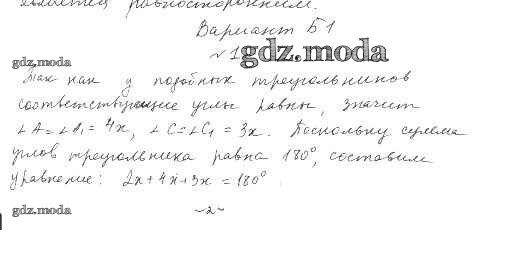 является равносторонним.
Вариант Б1
№1 gdz.moda
gdz.moda
Так как у подобных треугольников
соответствующие углы равны, значит
∠A = ∠A₁ = 4x, ∠C = ∠C₁ = 3x. Поскольку сумма
углов треугольника равна 180°, составим
уравнение: 2x + 4x + 3x = 180°
gdz.moda ~2~